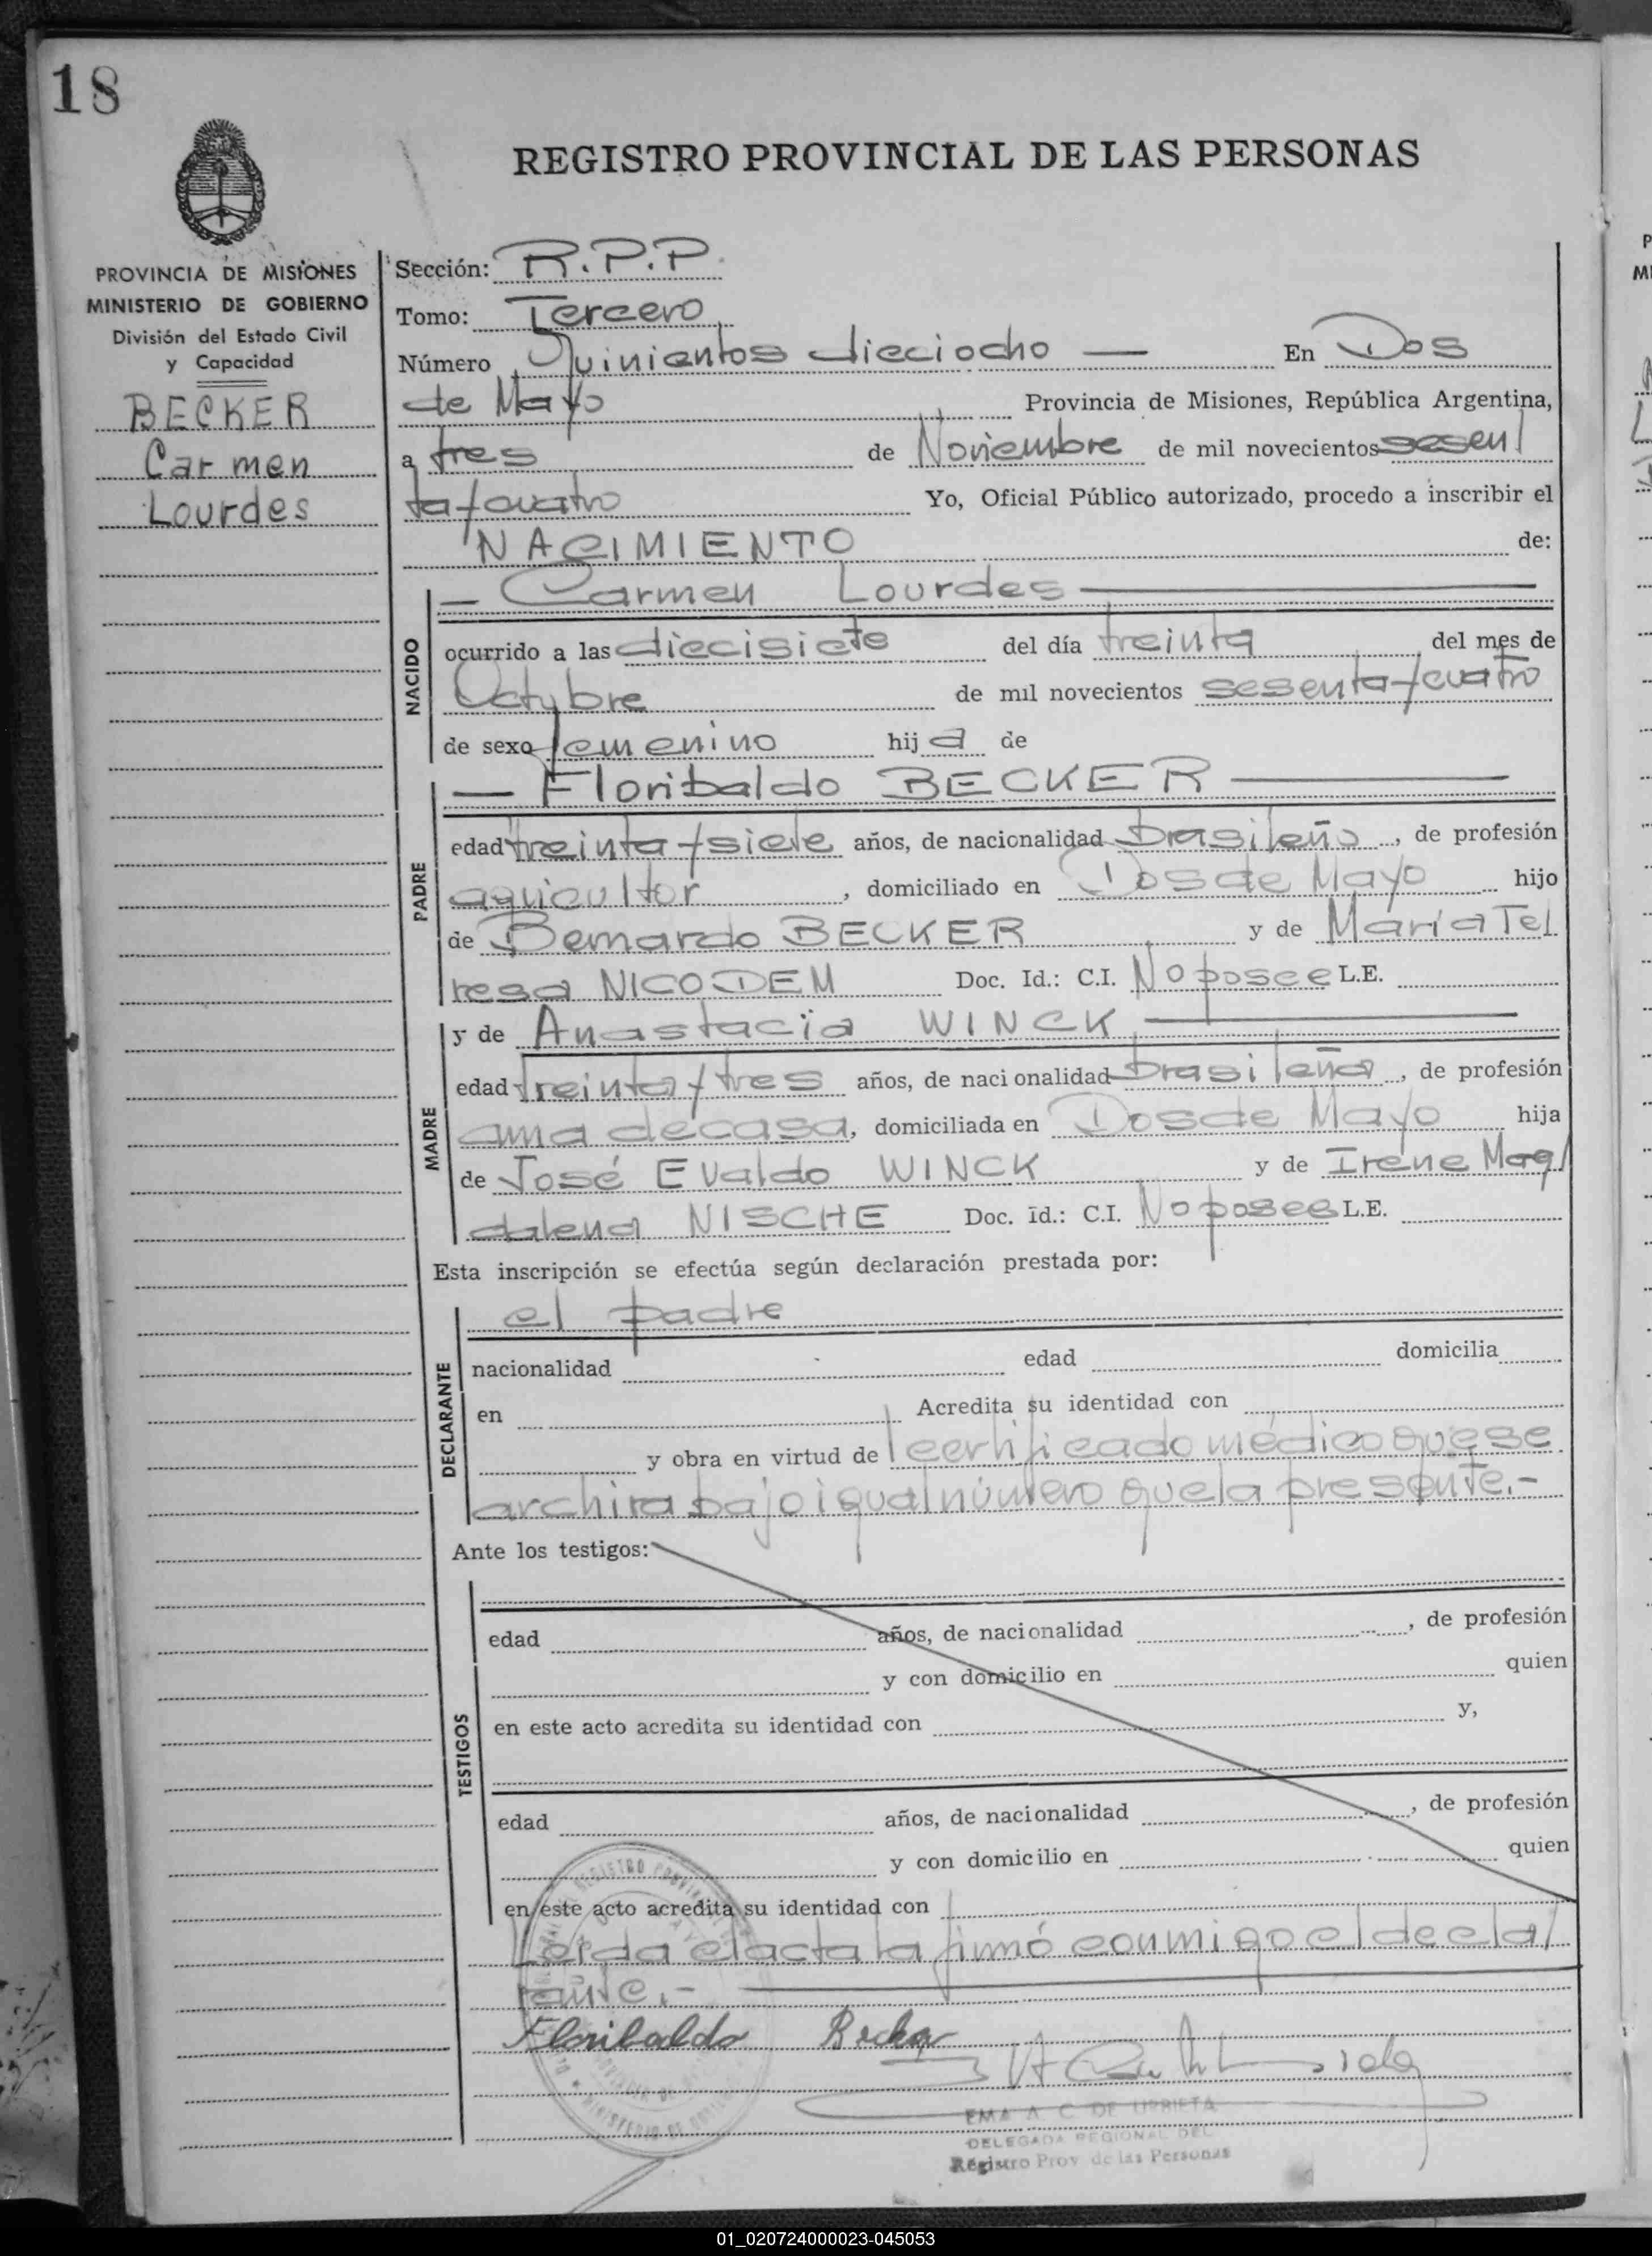 18
REGISTRO PROVINCIAL DE LAS PERSONAS
PROVINCIA DE MISIONES
MINISTERIO DE GOBIERNO
División del Estado Civil
y Capacidad
BECKER
Carmen
Lourdes
Sección: R.P.P.
Tomo: Tercero
Número Quinientos dieciocho — En Dos
de Mayo Provincia de Misiones, República Argentina,
a tres de Noviembre de mil novecientos sesen/
ta y cuatro Yo, Oficial Público autorizado, procedo a inscribir el
NACIMIENTO de:
NACIDO
— Carmen Lourdes —
ocurrido a las diecisiete del día treinta del mes de
Octubre de mil novecientos sesenta y cuatro
de sexo femenino hija de
PADRE
— Floribaldo BECKER —
edad treinta y siete años, de nacionalidad brasileño, de profesión
agricultor, domiciliado en Dos de Mayo hijo
de Bernardo BECKER y de María Te/
resa NICODEM Doc. Id.: C.I. No posee L.E.
MADRE
y de Anastacia WINCK —
edad treinta y tres años, de nacionalidad brasileña, de profesión
ama de casa, domiciliada en Dos de Mayo hija
de José Evaldo WINCK y de Irene Mag/
dalena NISCHE Doc. Id.: C.I. No posee L.E.
Esta inscripción se efectúa según declaración prestada por:
DECLARANTE
el padre
nacionalidad edad domicilia
en Acredita su identidad con
y obra en virtud de certificado médico que se
archiva bajo igual número que la presente.-
Ante los testigos:
TESTIGOS
edad años, de nacionalidad , de profesión
y con domicilio en quien
en este acto acredita su identidad con y,
edad años, de nacionalidad , de profesión
y con domicilio en quien
en este acto acredita su identidad con
Leída el acta la firmó conmigo el decla/
rante.-
Floribaldo Becker
EMA A. C. DE URRIETA
DELEGADA REGIONAL DEL
Registro Prov. de las Personas
01_020724000023-045053